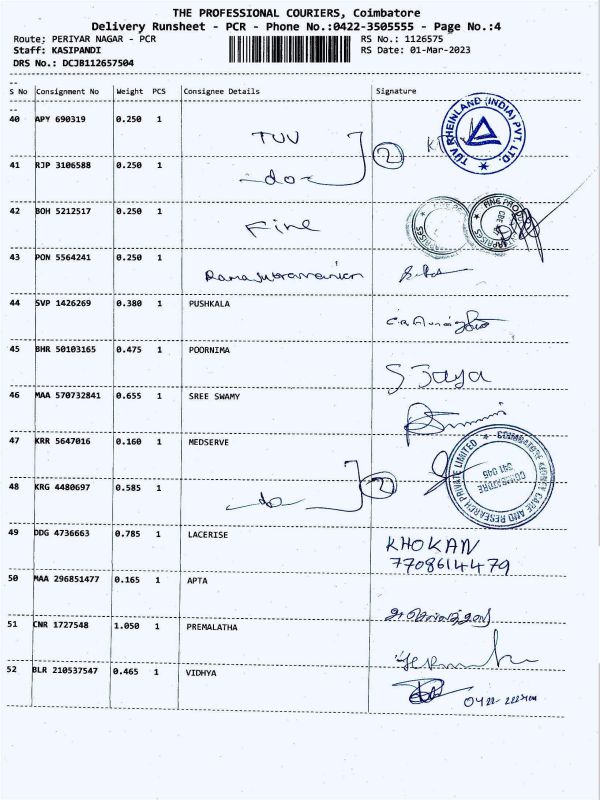 THE PROFESSIONAL COURIERS, Coimbatore
Delivery Runsheet - PCR - Phone No.:0422-3505555 - Page No.:4
Route: PERIYAR NAGAR - PCR RS No.: 1126575
Staff: KASIPANDI RS Date: 01-Mar-2023
DRS No.: DCJB112657504
S No Consignment No Weight PCS Consignee Details Signature
40 APY 690319 0.250 1 TUV
TUV RHEINLAND (INDIA) PVT. LTD.
2
41 RJP 3106588 0.250 1 -do-
42 BOH 5212517 0.250 1 Fine
43 PON 5564241 0.250 1
44 SVP 1426269 0.380 1 PUSHKALA
45 BHR 50103165 0.475 1 POORNIMA S Jaya
46 MAA 570732841 0.655 1 SREE SWAMY
47 KRR 5647016 0.160 1 MEDSERVE
2
COIMBATORE KIDNEY CARE AND RESEARCH PRIVATE LIMITED
COIMBATORE
641 045
48 KRG 4480697 0.585 1 -do-
49 DDG 4736663 0.785 1 LACERISE KHOKAN
7708614479
50 MAA 296851477 0.165 1 APTA
51 CNR 1727548 1.050 1 PREMALATHA
52 BLR 210537547 0.465 1 VIDHYA